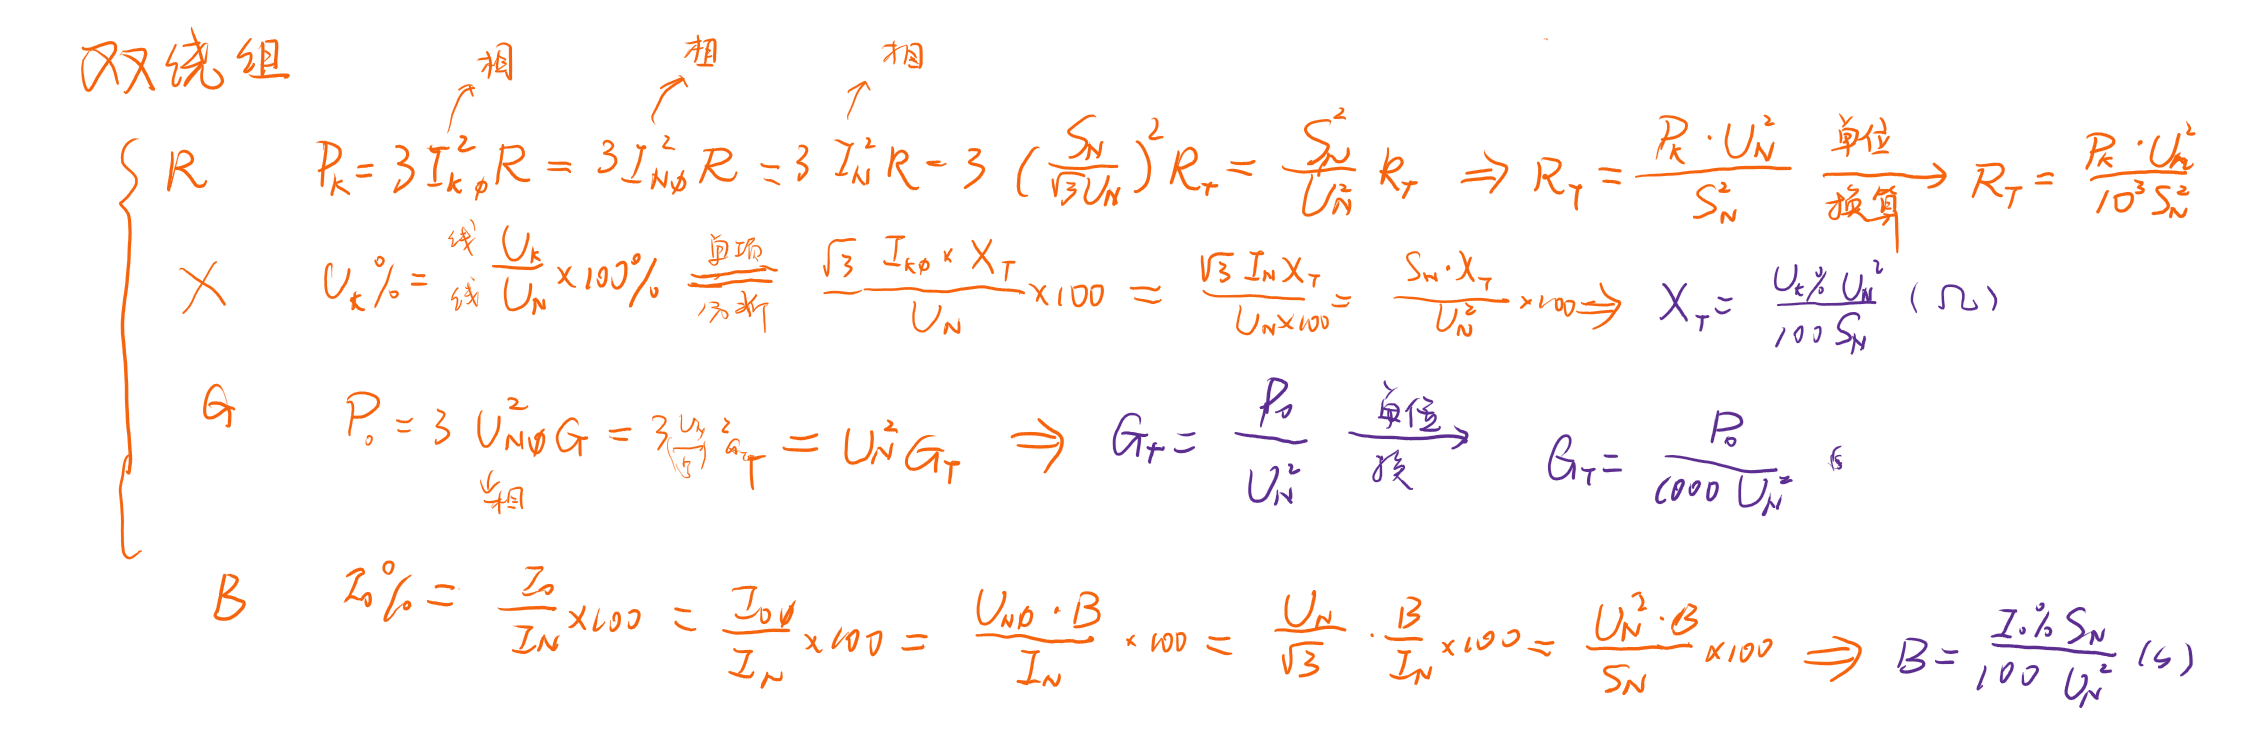 双绕组
相 相 相
R P_k = 3 I_{kφ}^2 R = 3 I_{Nφ}^2 R = 3 I_N^2 R = 3 (S_N/√3U_N)^2 R_T = S_N^2/U_N^2 R_T ⇒ R_T = P_k·U_N^2/S_N^2 单位换算→ R_T = P_k·U_N^2/10^3 S_N^2
X U_k% = 线 U_k/线 U_N ×100% 单项 √3 I_{kφ} × X_T/U_N ×100 = √3 I_N X_T/U_N×100 = S_N·X_T/U_N^2 ×100 ⇒ X_T = U_k% U_N^2/100 S_N (Ω)
G P_0 = 3 U_{Nφ}^2 G = 3(U_N/√3)^2 G_T = U_N^2 G_T ⇒ G_T = P_0/U_N^2 单位换→ G_T = P_0/1000 U_N^2
相
B I_0% = I_0/I_N ×100 = I_{0φ}/I_N ×100 = U_{Nφ}·B/I_N ×100 = U_N/√3 · B/I_N ×100 = U_N^2·B/S_N ×100 ⇒ B = I_0% S_N/100 U_N^2 (s)